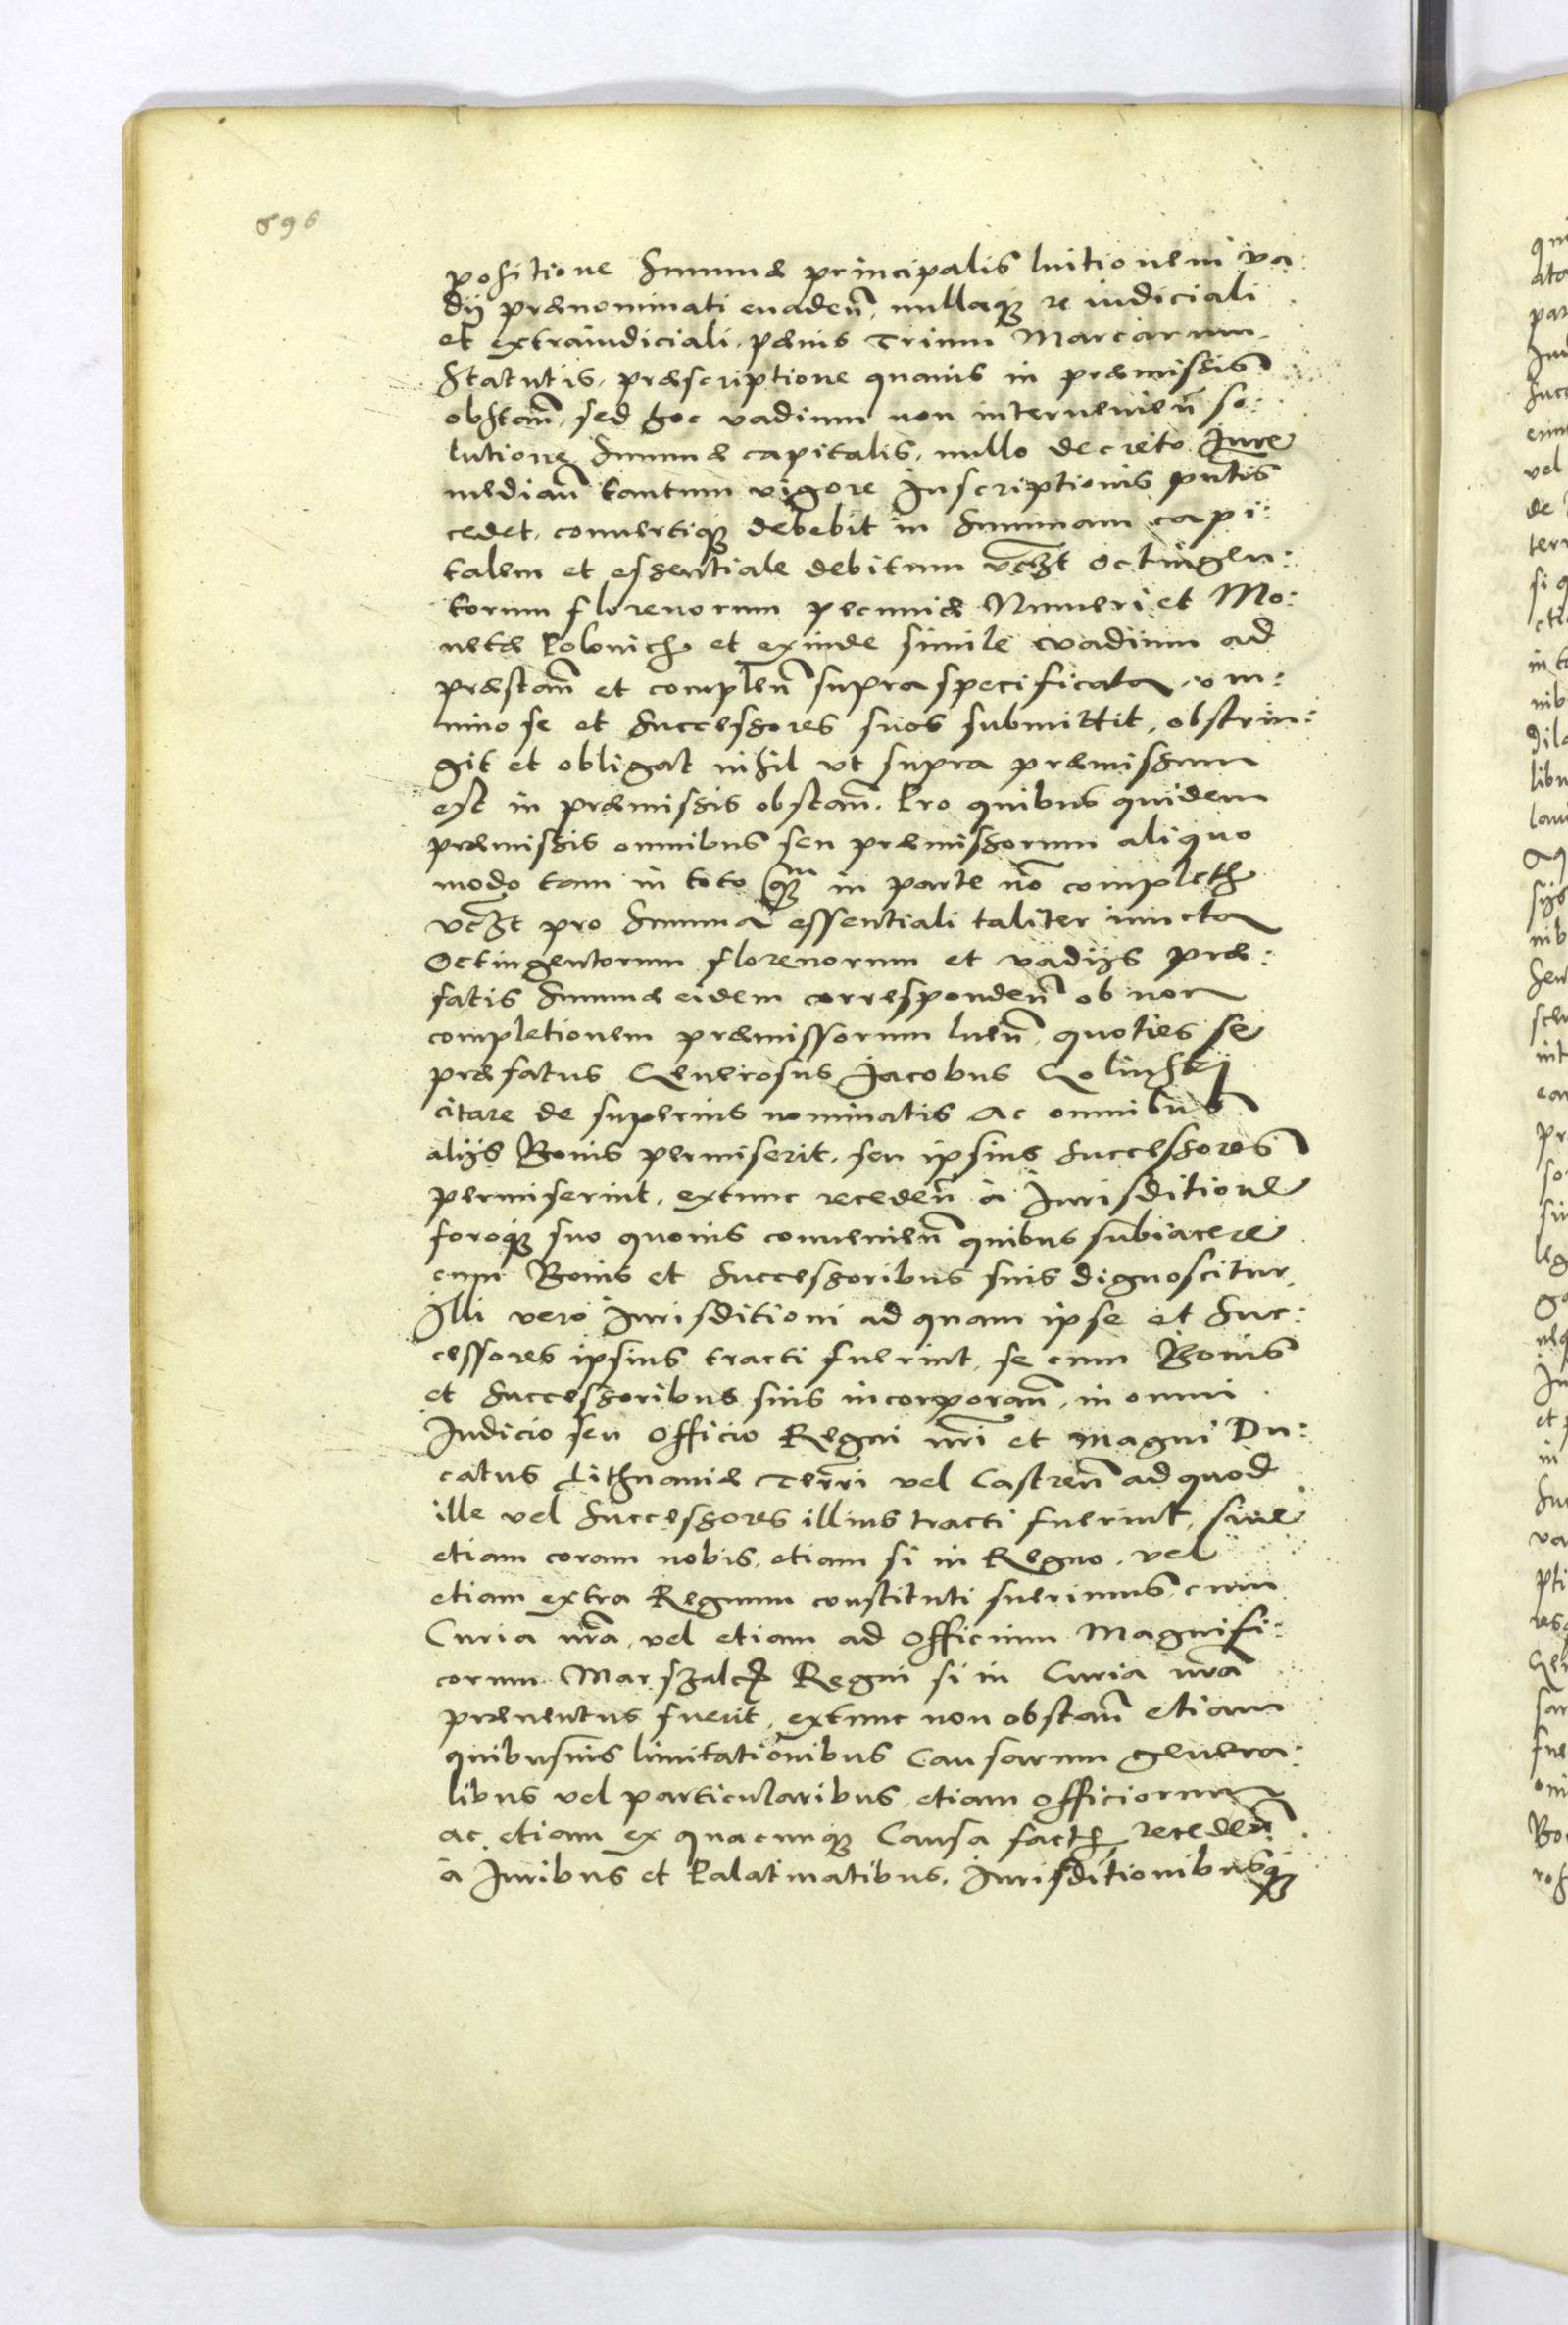 896
positione Summæ principalis luitionem va:
dij prænominati evadeñ, nullaqȝ re iudiciali
et extraiudiciali, pænis Trium Marcarum
Statutis, præscriptione quavis in præmissis
obstañ, sed hoc vadium non intervenieñ so:
lutione Summæ capitalis, nullo decreto Iure
mediañ tantum vigore Inscriptionis pñtis
cedet, convertiqȝ debebit in Summam capi:
talem et essentiale debitum vczt Octingen:
torum florenorum pecuniæ Numeri et Mo:
netæ Polonich et exinde simile vadium ad
præstañ et compleñ supra specificata, om:
nino se et Successores suos submittit, obstrin:
git et obligat nihil ut supra præmissum
est in præmissis obstañ. Pro quibus quidem
præmissis omnibus seu præmissorum aliquo
modo tam in toto qȝm in parte nõ complet
vczt pro Summa essentiali taliter iuncta
Octingentorum florenorum et vadijs præ:
fatis Summæ eidem correspondeñ ob non
completionem præmissorum lueñ, quoties se
præfatus Generosus Jacobus Golinskj
citare de superius nominatis ac omnibus
alijs Bonis permiserit, seu ipsius Successores
permiserint, extunc recedeñ à Iurisditione
foroqȝ suo quovis convenieñ quibus subiacere
cum Bonis et Successoribus suis dignoscitur
Illi vero Iurisditioni ad quam ipse et Suc:
cessores ipsius tracti fuerint, se cum Bonis
et Successoribus suis incorporañ, in omni
Iudicio seu Officio Regni nr̃i et Magni Du:
catus Lithuaniæ Terr̃ri vel Castreñ ad quod
ille vel Successores illius tracti fuerint, sive
etiam coram nobis, etiam si in Regno, vel
etiam extra Regnum constituti fuerimus cum
Curia nr̃a, vel etiam ad Officium Magnifi:
corum Marszalcor Regni si in Curia nr̃a
præventus fuerit, extunc non obstañ etiam
quibusvis limitationibus Causarum genera:
libus vel particularibus, etiam Officiorum
ac etiam ex quacunqȝ Causa fact recedeñ
à Iuribus et Palatinatibus, Iurisditionibusqȝ